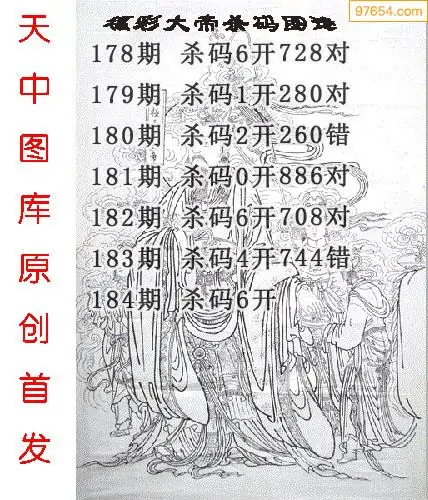 97654.com
福彩大帝杀码图谜
178期 杀码6开728对
179期 杀码1开280对
180期 杀码2开260错
181期 杀码0开886对
182期 杀码6开708对
183期 杀码4开744错
184期 杀码6开
天中图库原创首发